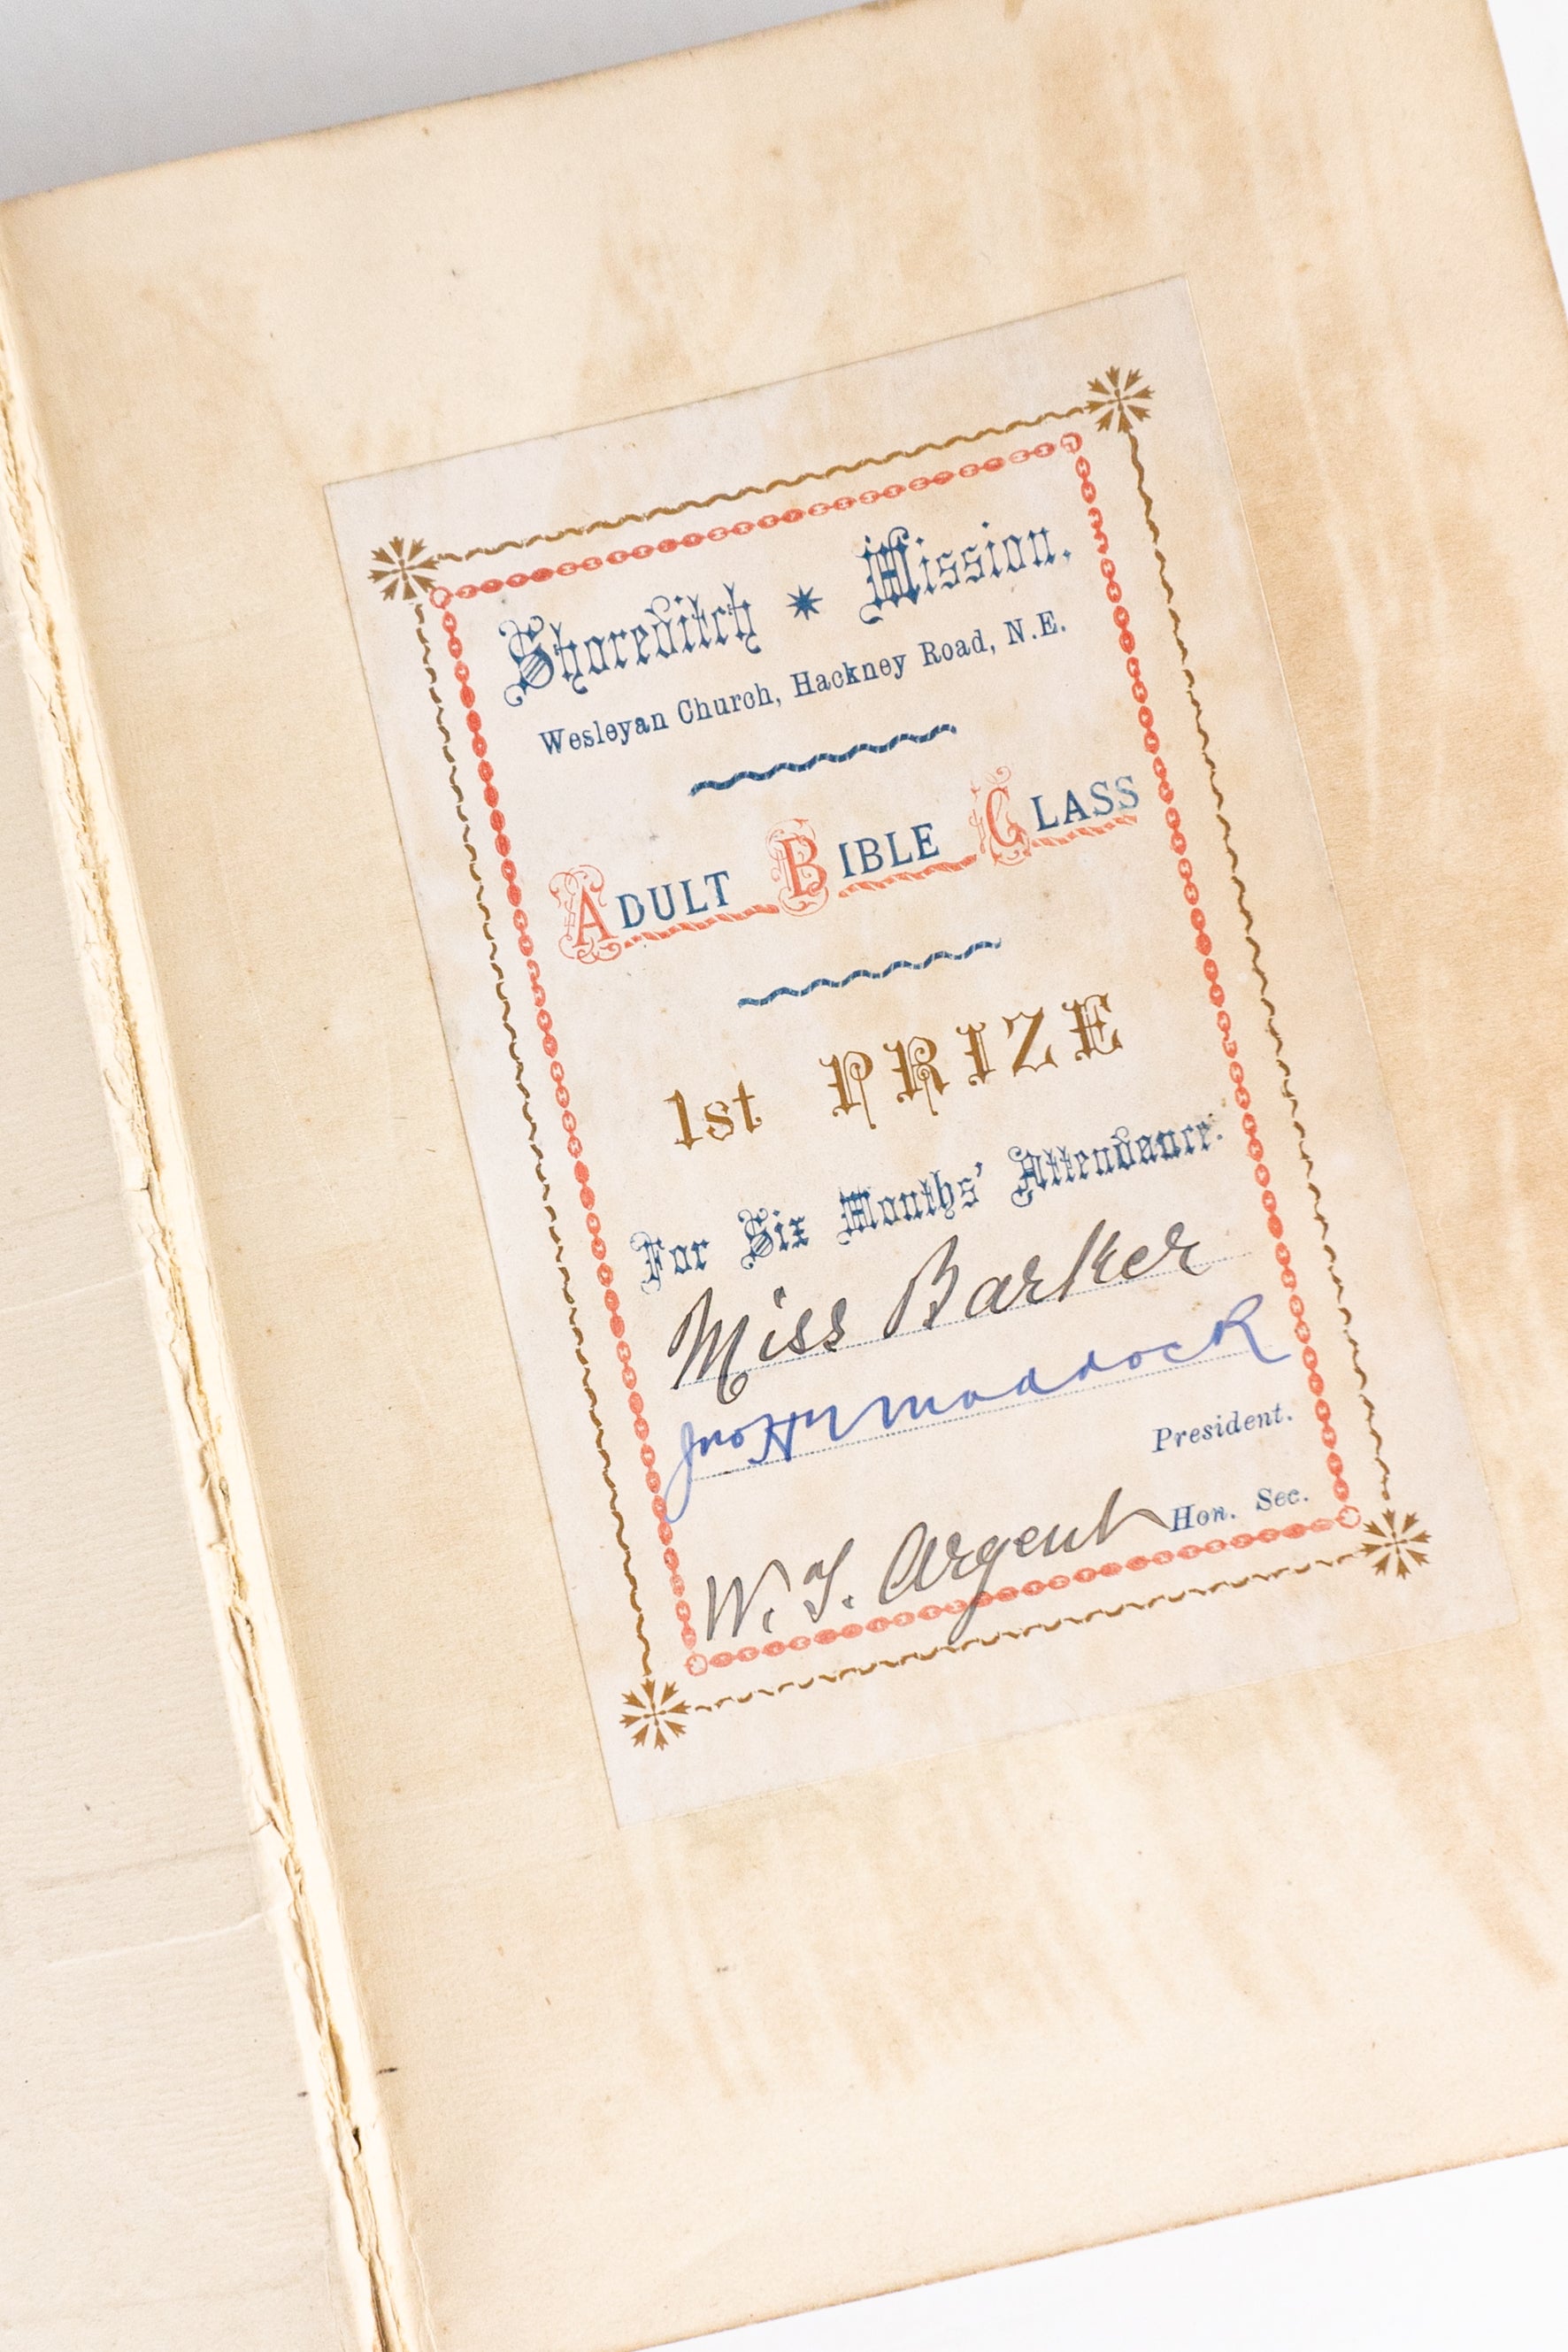 Shoreditch * Mission.
Wesleyan Church, Hackney Road, N.E.
ADULT BIBLE CLASS
1st PRIZE
For Six Months' Attendance.
Miss Barker
Maddock
President.
W. T. Argent Hon. Sec.